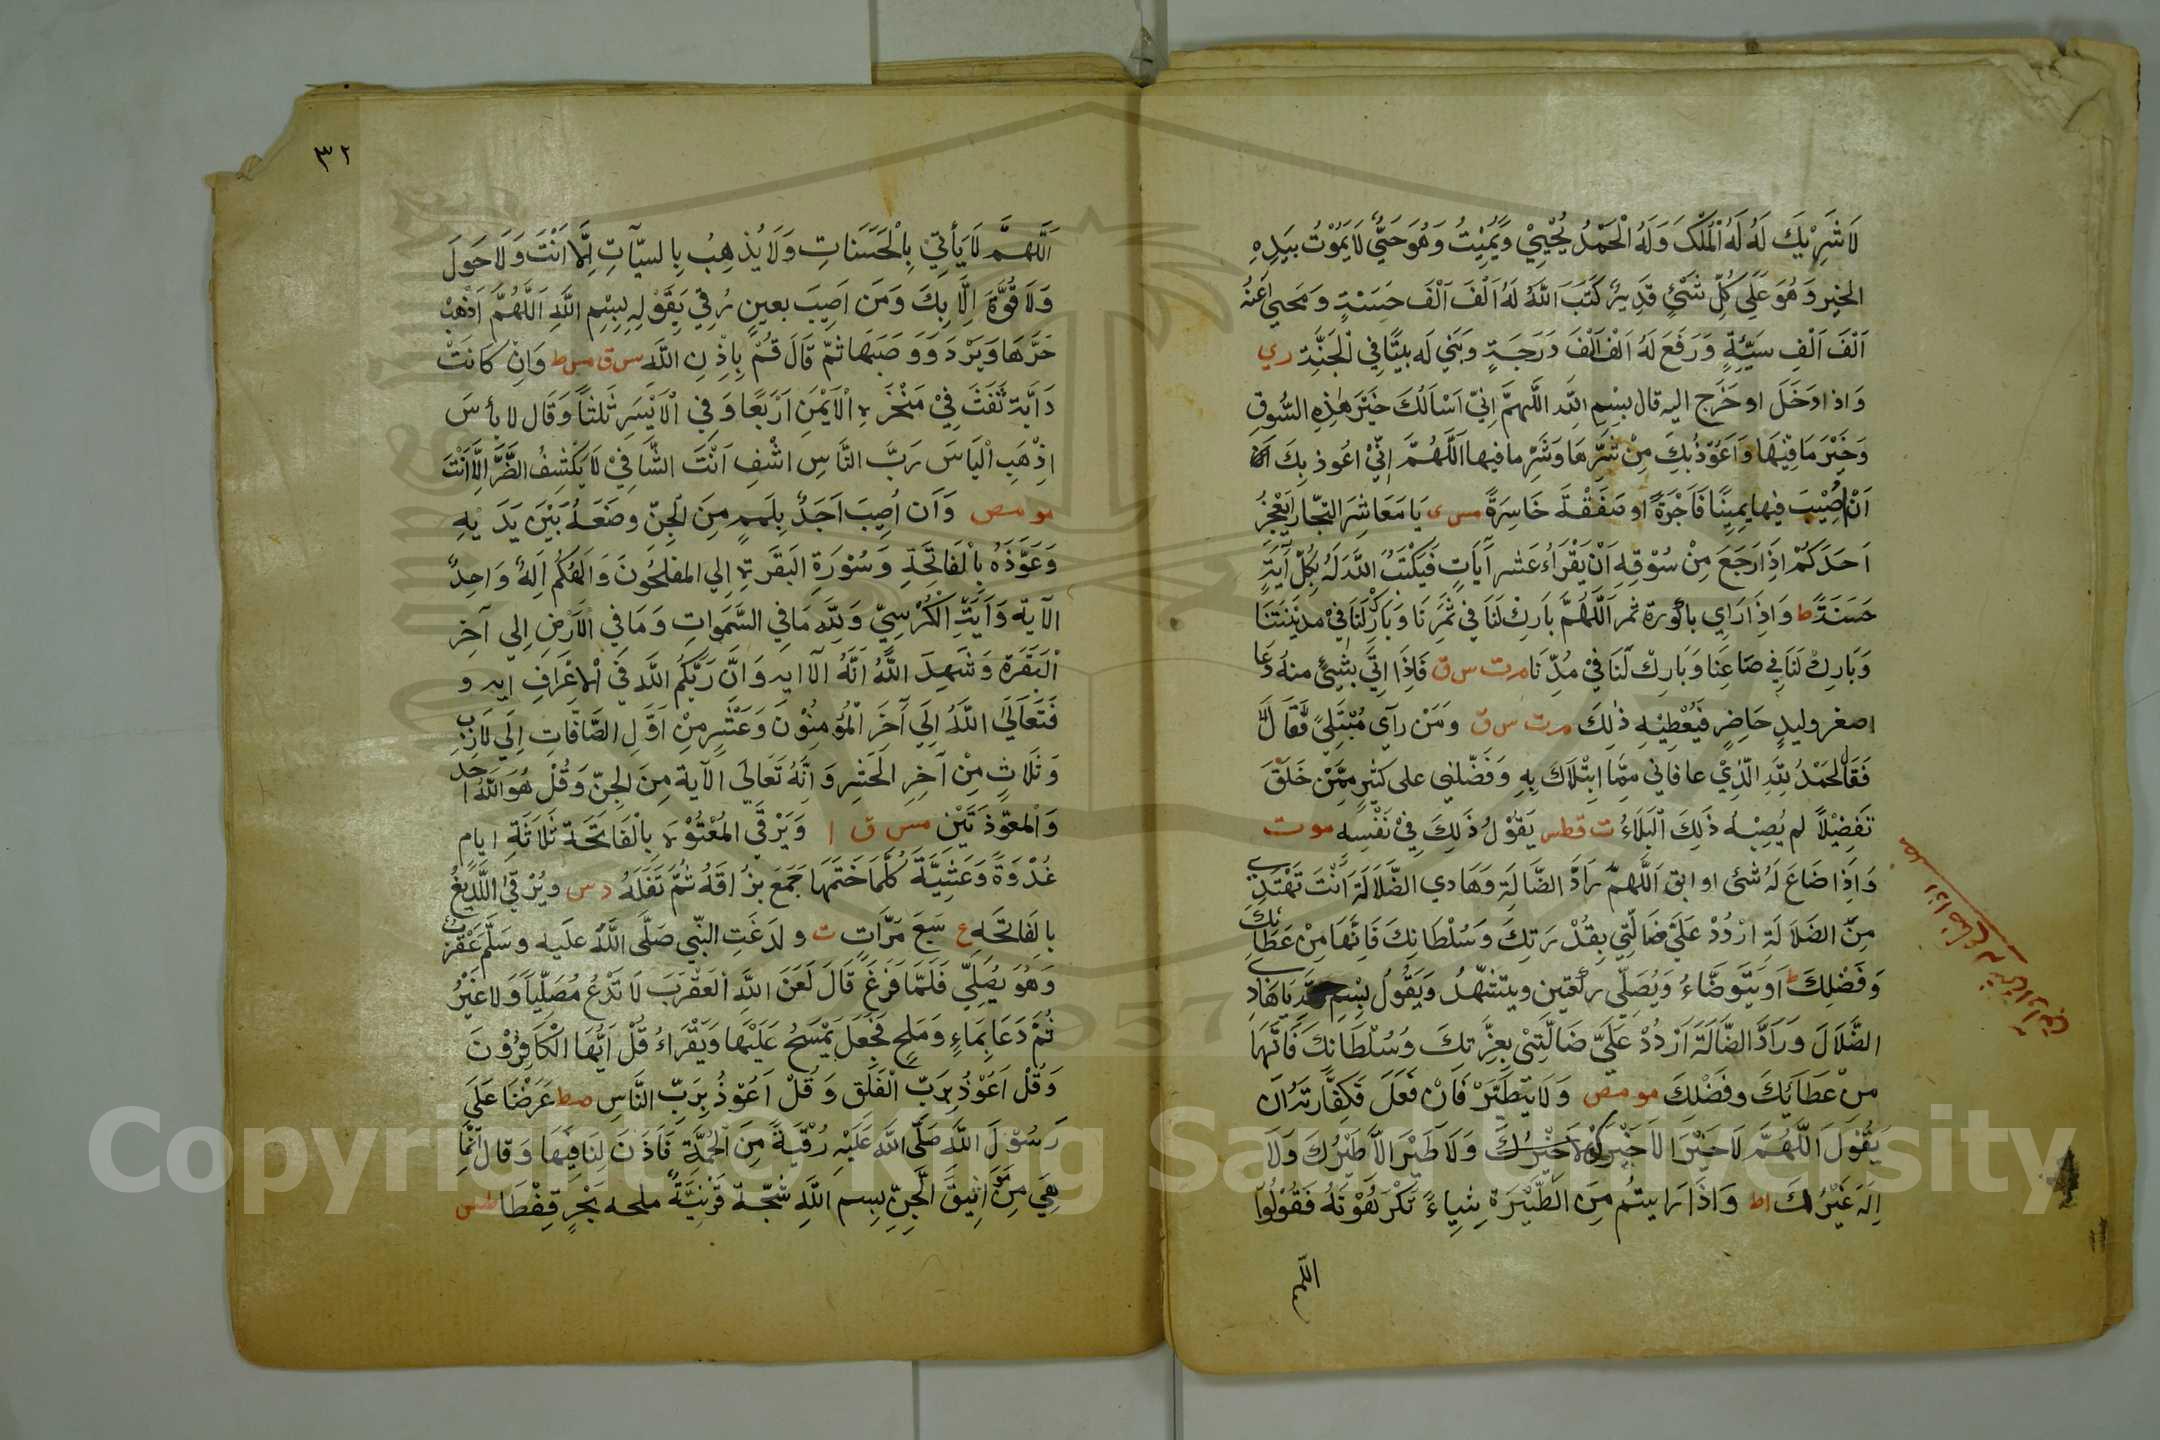 لَا شَرِيْكَ لَهُ لَهُ الْمُلْكُ وَلَهُ الْحَمْدُ يُحْيِيْ وَيُمِيْتُ وَهُوَ حَيٌّ لَا يَمُوْتُ بِيَدِهِ
الخير وَهُوَ عَلَى كُلِّ شَئٍ قَدِيرٌ كَتَبَ اللّٰهُ لَهُ اَلْفَ اَلْفَ حَسَنَةٍ وَمَحىٰ عَنْهُ
اَلْفَ اَلْفِ سَيِّئَةٍ وَرَفَعَ لَهُ اَلْفَ اَلْفَ دَرَجَةٍ وَبَنٰي له بيتًا فِي الْجَنَّةِ ري
وَاذا دَخَلَ او خَرَج اليه قال بِسْمِ اللّٰهِ اللّٰهمَّ اِنّيْ اَسْاَلُكَ خَيْرَ هٰذِهِ السُّوقِ
وَخَيْرَ مَا فِيْهَا وَاَعُوْذُ بِكَ مِنْ شَرِّهَا وَشَرِّ ما فيها اَللّٰهُمَّ اِنّيْ اعُوذ بِكَ
اَنْ اُصِيْبَ فيها يَمِيْنًا فَاجِرَةً او صَفَقْةً خَاسِرَةً مس ى يَا مَعَاشِرَ التجّار ايَعْجِزُ
اَحَدَكُمْ اِذَا رَجَعَ مِنْ سُوْقِهِ اَنْ يَقْرَاَ عَشر آيَاتٍ فَيَكْتُبُ اللّٰه لَهُ بِكُلِّ آيَةٍ
حَسَنَةً ط وَاِذَا رَاي باكُورة ثمر اَللّٰهُمَّ بَارِكْ لَنَا فِي ثَمَرِنَا وَبَارِكْ لَنَا فِيْ مدِيْنَتَنَا
وَبَارِكْ لَنَا فِي صَاعِنَا وَبَارِكْ لَنَا فِيْ مُدِّنَا مرت س ق فَاِذَا اتىَ بِشَيْئٍ منهُ دَعَا
اصغر وليدٍ حَاضِرٍ فَيُعْطِيْهِ ذٰلِكَ مرت س ق وَمَنْ رآي مُبْتَلىً فَقَالَ
فَقَالحَمْدُ لِلّٰهِ الَّذِيْ عافاني مِمَّا ابْتَلَاكَ بِهِ وَفَضَّلني على كثيرٍ مِمَّنْ خَلَقَ
تَفضِيْلاً لم يُصِبْهُ ذَلِكَ الْبَلَاءُ ت ق طس يَقُوْلُ ذَلِكَ فِيْ نَفْسِهِ مو ت
وَاِذَا ضَاعَ لَهُ شئ او ابق اَللّٰهمَّ رَادَّ الضَّالَةِ وَهَادي الضَّلَالَةِ اَنْتَ تَهْتَدِي
مِنَ الضَلَالَةِ ارْدُدْ عَلَيَّ ضَالَّتِي بِقُدْرَتِكَ وَسُلْطَانِكَ فَاِنَّهَا مِنْ عَطَائِكَ
وَفَضْلِكَ ط اَو يَتَوَضَّاءُ وَيُصَلّي ركعتين ويتشهّدُ وَيَقُولُ بِسْمِ يَا هَادِي
الضَّلَالَ وَرَادَّ الضَّالَةَ اَرْدُدْ عَلَيَّ ضَالَّتِيْ بِعِزَّتِكَ وَسُلْطَانِكَ فَاِنَّهَا
مِنْ عَطَائِكَ وفَضْلِكَ مو مص وَلَا يَتَطَيَّرْ فَاِنْ فَعَلَ فَكَفَّارَتهُ اَن
يَقُوْلَ اللّٰهُمَّ لَا خَيْرَ الا خَيْرُكَ وَلَا طَيْرَ الَّا طَيْرُكَ وَلَا
اِلَهَ غَيْرُكَ اط وَاِذَا رايتُم مِنَ الطَّيْرَةِ شياءً تَكْرَهُوْنَهُ فَقُوْلُوا
اللهم
٣٢
اَللّٰهمَّ لَا يَأتِيْ بِالْحَسَنَاتِ وَلَا يُذهِبُ بِالسيّآتِ اِلَّا اَنْتَ وَلَا حَوْلَ
وَلَا قُوَّةَ اِلَّا بِكَ وَمَن اُصِيبَ بعينٍ رُقِيَ بِقَوْلِهِ بِسْمِ اللّٰهِ اَللّٰهُمَّ اَذْهِبْ
حَرَّهَا وَبَرْدَ وَوَصَبَها ثمّ قَالَ قُمْ بِاِذْنِ اللّٰهِ س ق مس ط وَاِنْ كَانَتْ
دَابَّة نُفَثَ فِيْ مَنْخَرِهِ الْاَيْمَنِ اَرْبَعًا وَفي الْاَيْسَرِ ثَلثاً وَقَال لا بأسَ
اِذْهَبِ الْبَاسَ رَبَّ النَّاسِ اشْفِ اَنْتَ الشَّافِيْ لَا يَكْشِفُ الضُّرَّ اِلَّا اَنْتَ
مو مص وَاَن اُصِيبَ اَحَدٌ بِلَمَمٍ مِنَ الجنّ وضَعَهُ بَيْنَ يَدَيْهِ
وَعَوَّذَهُ بِالْفَاتِحَةِ وَسُوْرَةِ البَقَرَةِ اِلي المفلحُونَ وَالهُكُم اِلهٌ وَاحِدٌ
الآيه وَآيَةِ الْكُرْسِيّ وَلِلّٰه مَا فِي السَّمَواتِ وَمَا في الْاَرْضِ اِلي آخِرِ
الْبَقَرَةِ وَشَهِدَ اللّٰهُ اَنَّهُ الآ ايه وَاِنَّ رَبَّكُم اللّٰهَ في الْاَعْرَافِ ايه و
فَتَعَالَىٰ اللّٰهُ اِلَي آخَرَ الْمُؤْمِنُوْنَ وَعَشْرٍ مِنْ اَوَّلِ الصَّافّاتِ اِلَي لَازِبٍ
وَثَلَاثٍ مِنْ آخِرِ الحَشْرِ وَاِنَّهُ تَعَالَي الآية مِنَ الجِنّ وَقُلْ هُوَ اللّٰهُ احَدٌ
وَالْمعوّذَتَيْنِ مس ق ا وَيَرْقَي المُعْتُوْهَ بِالْفَاتحَة ثَلَاثَةِ ايام
غُدْوَةً وَعَشِيَّةً كُلَّمَا خَتَمَهَا جَمَعَ بُزاقَهُ ثُمَّ تَفَلَهُ د س ويُرْقَىٰ اللَّدِيْغُ
بالفَاتحَه ع سَبْعَ مَرَّاتٍ ت ولدَغَتِ النبّي صَلّى اللّٰهُ علَيه وسَلَّم عَقْرَبٌ
وَهُوَ يُصَلّي فَلَمَّا فَرَغَ قَالَ لَعَنَ اللّٰهُ الْعَقْرَبَ لَا تَدْعُ مُصَلّياً وَلا غَيْرُ
ثُمَّ دَعَا بِمَاءٍ وَمَلحٍ فَجعَلَ يَمْسَحُ عَلَيْهَا وَيَقْرَاءُ قُلْ اَيُّهَا الْكَافِرُوْنَ
وَقُلْ اَعُوْذُ بِرَبّ الْفَلَق وَقُلْ اَعُوْذُ بِرَبّ النَّاسِ صط عَرَضْنَا عَلَى
رَسُوْلَ اللّٰه صَلَّى اللّٰه عَلَيْهِ رُقْيَةً مِنَ الْحُمَّةِ فَاَذَنَ لَنَا فِيْهَا وَقَالَ اِنَّمَا
هِيَ مِنَ مَوَاثِيقَ الْجِنِّ بِسم اللّٰهِ شَجّة قَرْنِيَّةٌ ملحه بَحْرٍ قِفْطَا طس
Copyright © King Saud University
1957